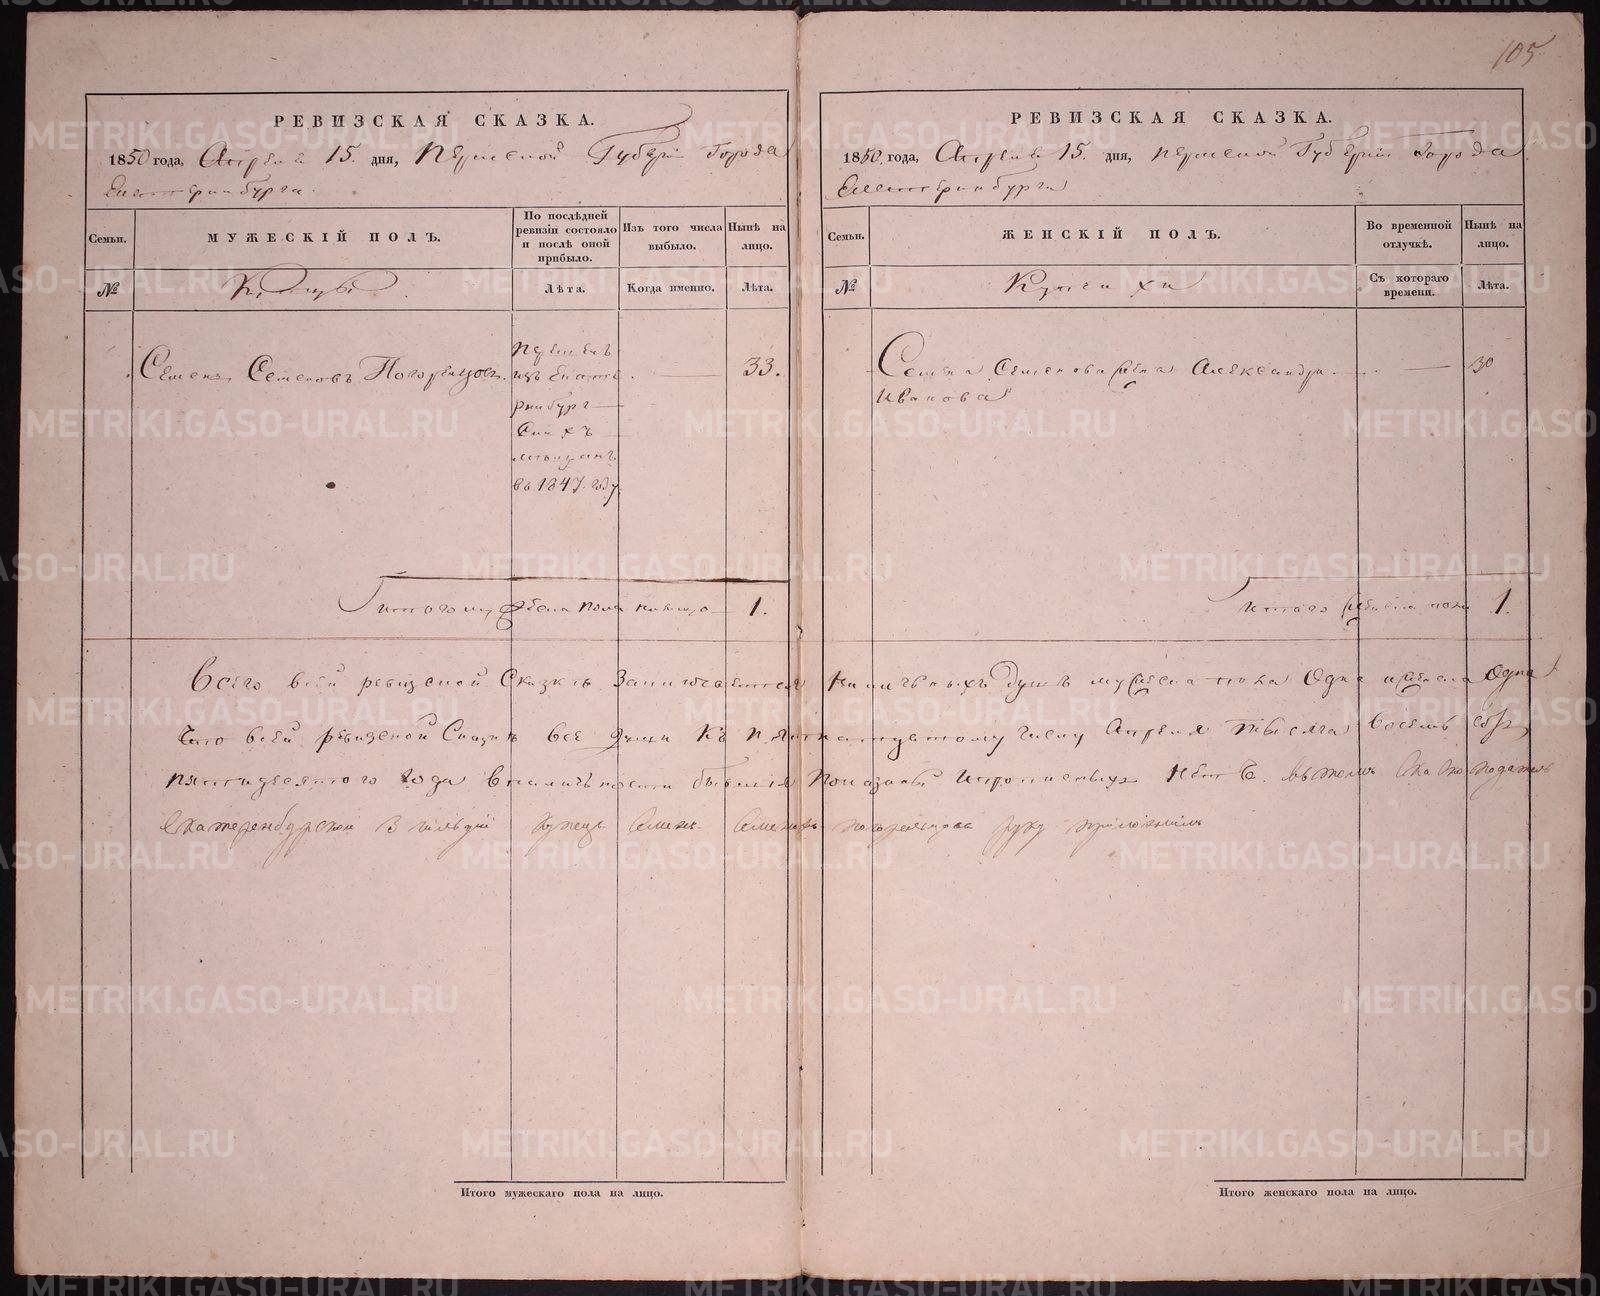 105
РЕВИЗСКАЯ СКАЗКА.
1850 года, Апреля 15. дня, Пермской Губерніи Города
Екатеринбурга.
Семьи.
МУЖЕСКІЙ ПОЛЪ.
По послѣдней ревизіи состояло и послѣ оной прибыло.
Изъ того числа выбыло.
Нынѣ на лицо.
№
Купцы
Лѣта.
Когда именно.
Лѣта.
Семенъ Семеновъ Погорельцовъ.
33.
изъ Екате
ринбург
скихъ
мѣщанъ
въ 1847 году
Итого мужеска пола налицо 1.
РЕВИЗСКАЯ СКАЗКА.
1850 года, Апреля 15. дня, Пермской Губерніи Города
Екатеринбурга
Семьи.
ЖЕНСКІЙ ПОЛЪ.
Во временной отлучкѣ.
Нынѣ на лицо.
№
Купчихи
Съ котораго времени.
Лѣта.
Семена Семенова жена Александра
Иванова
30
Итого женска пола 1.
Всего в сей ревизской Сказкѣ Заключается Наличныхъ душъ мужеска пола Одна и женска Одна
Что в сей ревизской Сказкѣ все души Къ пятнатцатому числу Апреля тысяча восемь сотъ
пятидесятого года в наличьности бывшія Показаны и прописныхъ Нетъ. въ томъ сказкоподатель
Екатеренбурской 3 гильдии купецъ Семенъ Семеновъ Погорельцовъ руку приложилъ
Итого мужескаго пола на лицо.
Итого женскаго пола на лицо.
METRIKI.GASO-URAL.RU